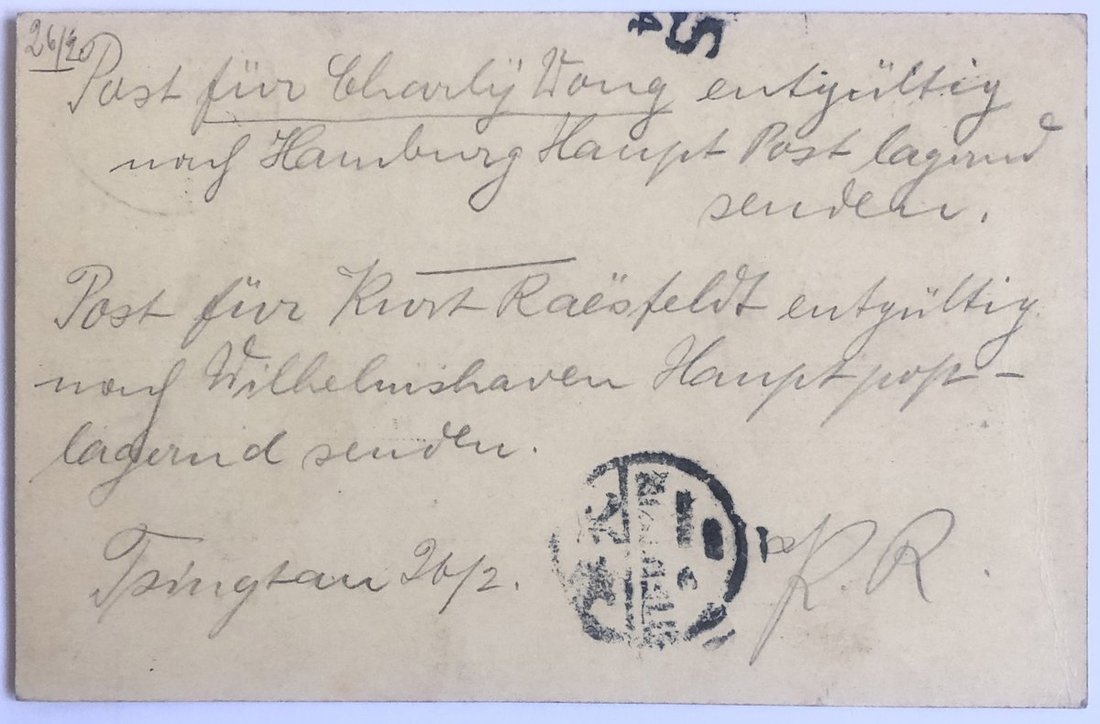 26/20
Post für Charlÿ Wong entgültig
nach Hamburg Haupt Post lagernd
senden.
Post für Kurt Raësfeldt entgültig
nach Wilhelmshaven Hauptpost-
lagernd senden.
Tsingtau 26/2.
K. R.